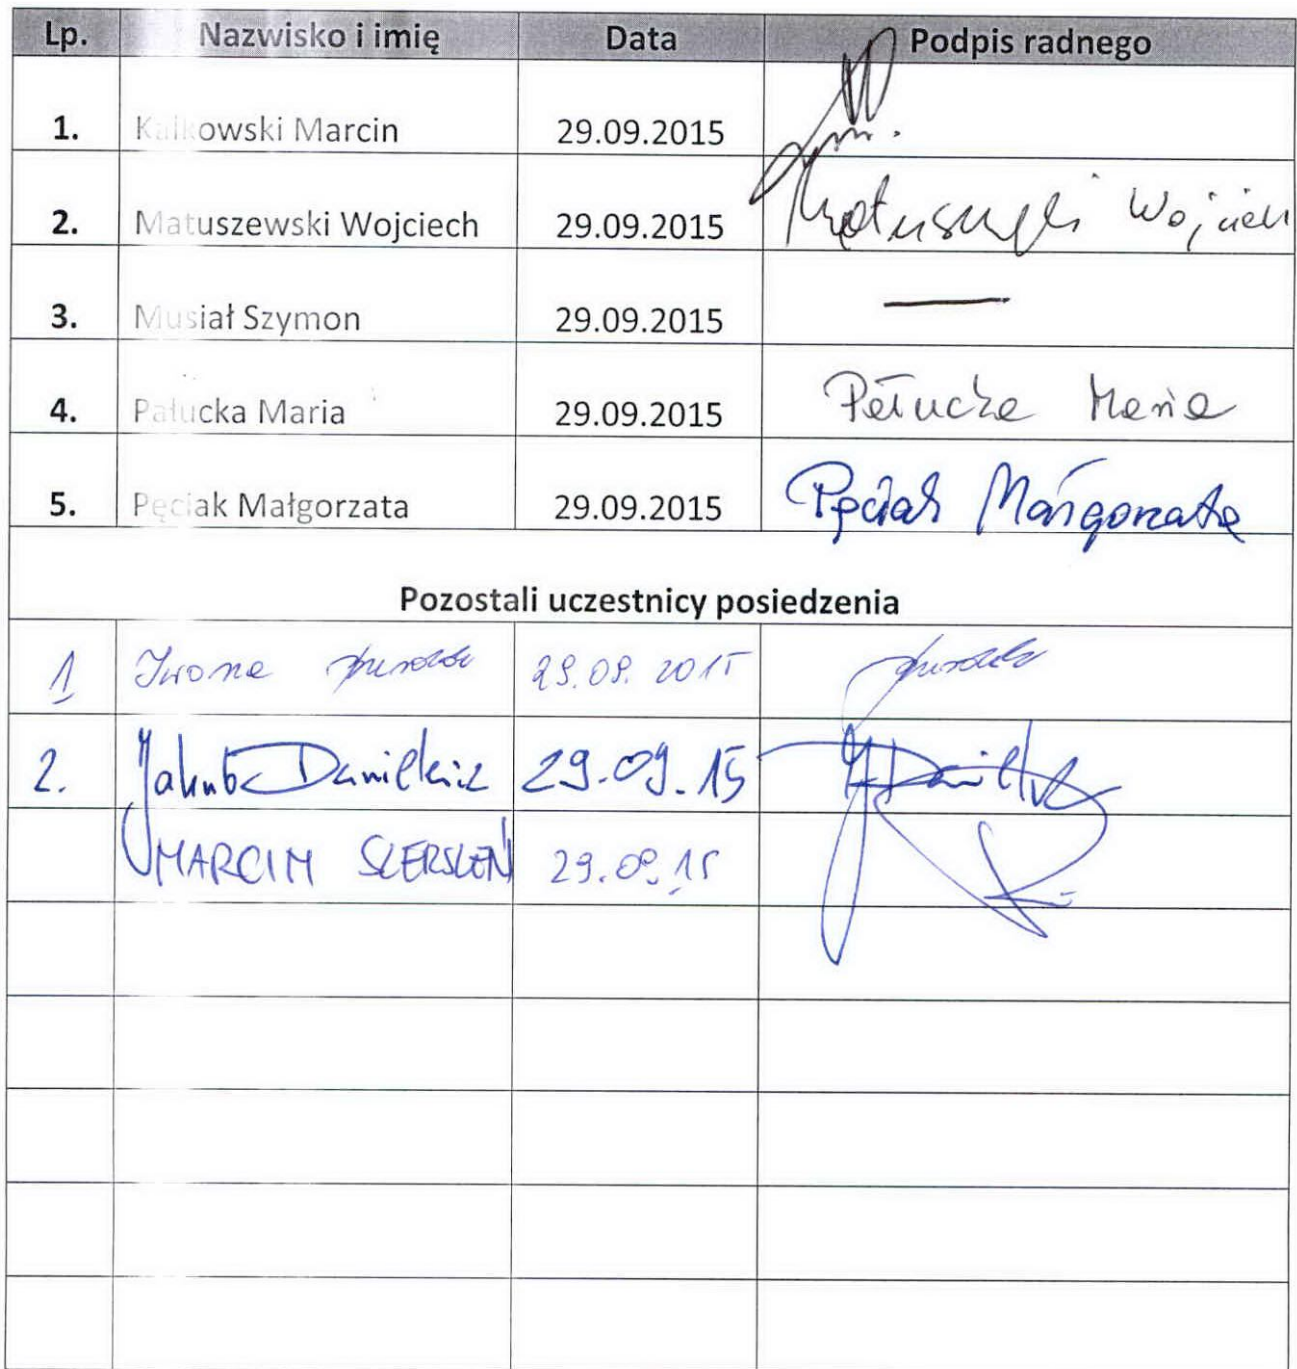 Lp. Nazwisko i imię Data Podpis radnego
1. Kalkowski Marcin 29.09.2015
2. Matuszewski Wojciech 29.09.2015 Matuszewski Wojciech
3. Musiał Szymon 29.09.2015 —
4. Pałucka Maria 29.09.2015 Pałucka Maria
5. Pęciak Małgorzata 29.09.2015 Pęciak Małgorzata
Pozostali uczestnicy posiedzenia
1 Iwona 29.09.2015
2. Jakub 29.09.15
MARCIN 29.09.15